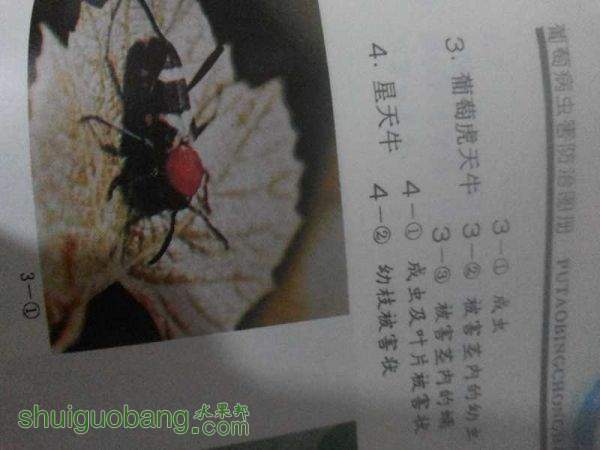 葡萄病虫害防治图册 PUTAOBINGCHONGH
3-① 成虫
3. 葡萄虎天牛 3-② 被害茎内的幼虫
3-③ 被害茎内的蛹
4-① 成虫及叶片被害状
4. 星天牛 4-② 幼枝被害状
3-①
shuiguobang.com 水果邦